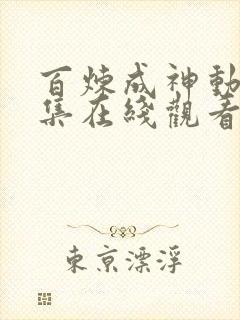 百煉成神動
集在綫觀看
東京漂浮